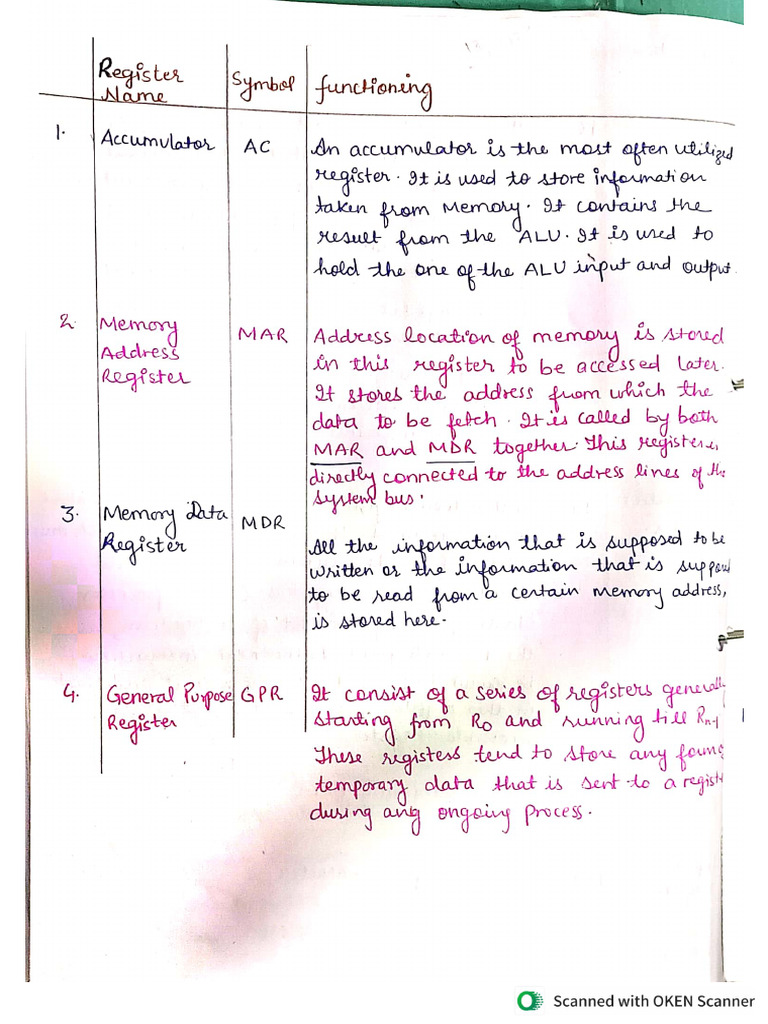 Register Name Symbol functioning
1. Accumulator AC An accumulator is the most often utilized
register. It is used to store information
taken from Memory. It contains the
result from the ALU. It is used to
hold the one of the ALU input and output.
2. Memory Address Register MAR Address location of memory is stored
in this register to be accessed later.
It stores the address from which the
data to be fetch. It is called by both
MAR and MDR together. This register is
directly connected to the address lines of the
System bus.
3. Memory Data Register MDR
All the information that is supposed to be
written or the information that is suppos
to be read from a certain memory address,
is stored here.
4. General Purpose Register GPR It consist of a series of registers generall
starting from R0 and running till Rn-1
These registers tend to store any
temporary data that is sent to a regist
during any ongoing process.
Scanned with OKEN Scanner